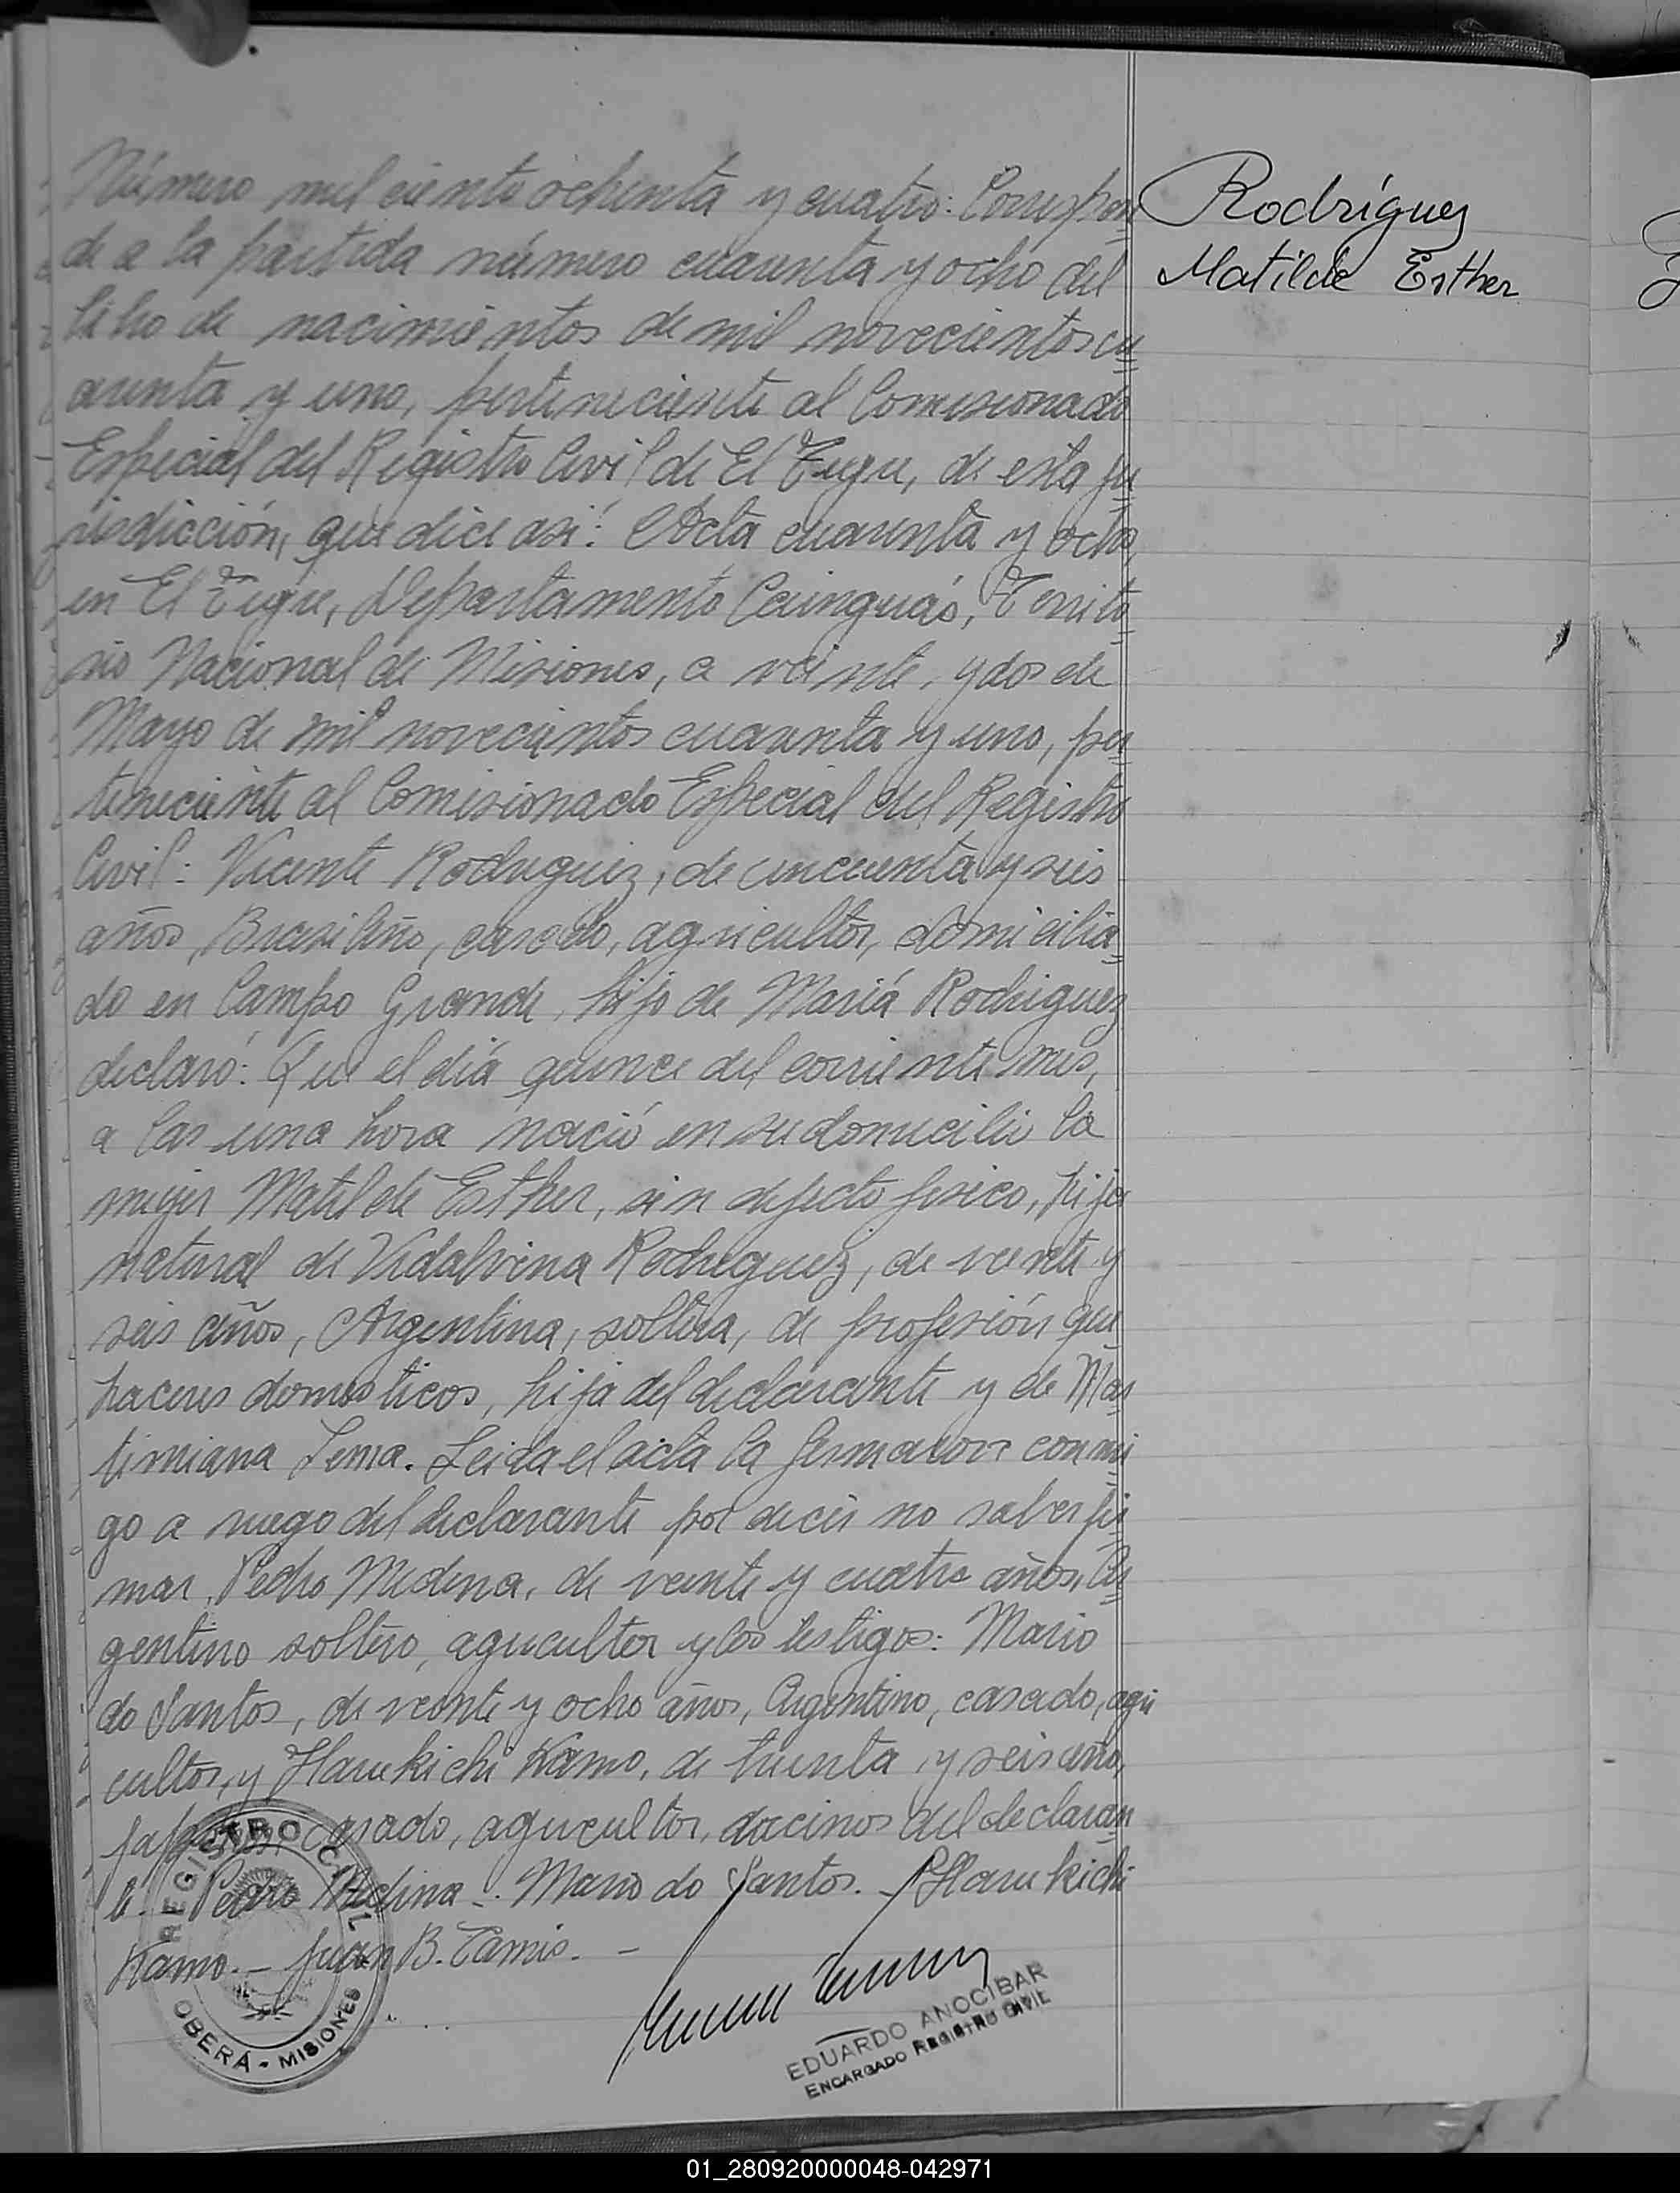 Número mil ciento ochenta y cuatro: Correspon
de a la partida número cuarenta y ocho del
libro de nacimientos de mil novecientos cu
arenta y uno, perteneciente al Comisionado
Especial del Registro Civil de El Tigre, de esta ju
risdicción, que dice asi: Acta cuarenta y ocho,
en El Tigre, Departamento Cainguás, Territo
rio Nacional de Misiones, a veinte y dos de
Mayo de mil novecientos cuarenta y uno, per
teneciente al Comisionado Especial del Registro
Civil: Vicente Rodriguez, de cincuenta y seis
años, Brasileño, casado, agricultor, domicilia
do en Campo Grande, hijo de Mariá Rodriguez
declaró: Que el diá quince del corriente mes,
a las una hora nació en su domicilio la
mujer Matilde Esther, sin defecto fisico, hija
natural de Vidalvina Rodriguez, de veinte y
seis años, Argentina, soltera, de profesión que
haceres domesticos, hija del declarante y de Mar
timiana Lema. Leida el acta la firmaron conmi
go a ruego del declarante por decir no saber fir
mar, Pedro Medina, de veinte y cuatro años, Ar
gentino soltero, agricultor y los testigos: Mario
do Santos, de veinte y ocho años, Argentino, casado, agri
cultor, y Harukichi Kamo, de treinta y seis años,
japones, casado, agricultor, vecinos del declaran
te. Pedro Medina - Mario do Santos. - Harukichi
Kamo. - Juan B. Tamis. -
Rodríguez
Matilde Esther
REGISTRO CIVIL
OBERÁ - MISIONES
EDUARDO ANOCIBAR
ENCARGADO REGISTRO CIVIL
01_280920000048-042971